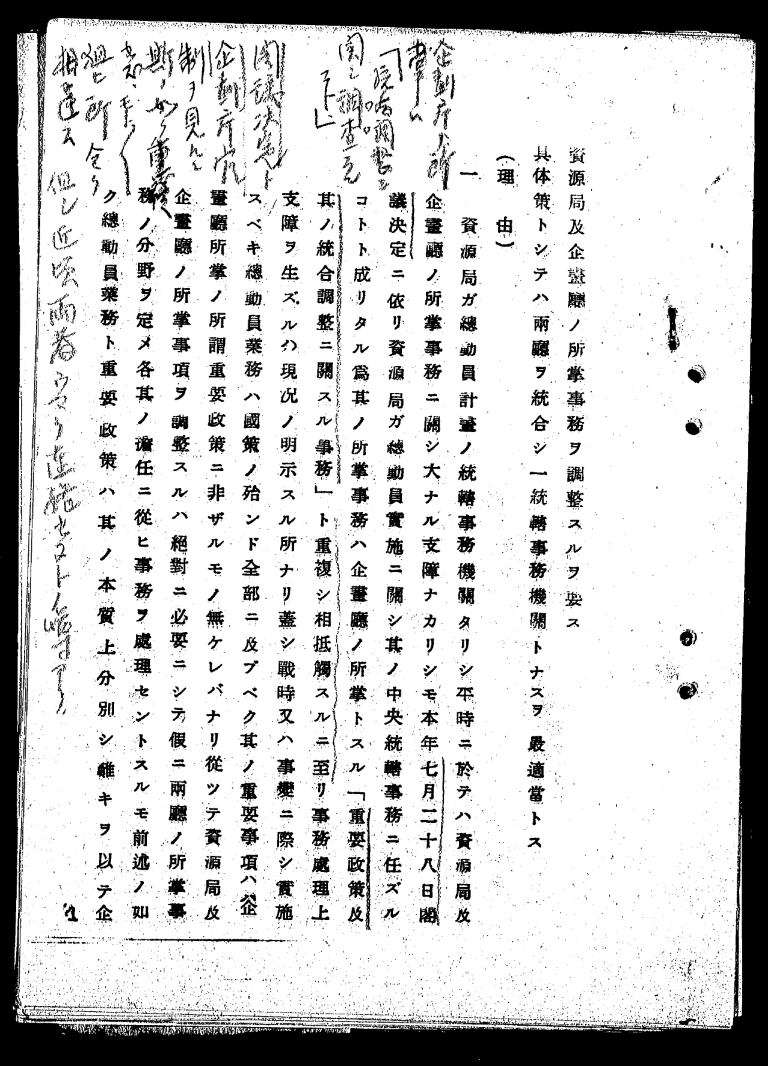 資源局及企畫廳ノ所掌事務ヲ調整スルヲ要ス
具体策トシテハ兩廳ヲ統合シ一統轄事務機關トナスヲ最適當トス
(理由)
一 資源局ガ總動員計畫ノ統轄事務機關タリシ平時ニ於テハ資源局及
企畫廳ノ所掌事務ニ關シ大ナル支障ナカリシモ本年七月二十八日閣
議決定ニ依リ資源局ガ總動員實施ニ關シ其ノ中央統轄事務ニ任ズル
コトト成リタル爲其ノ所掌事務ハ企畫廳ノ所掌トスル「重要政策及
其ノ統合調整ニ關スル事務」ト重複シ相抵觸スルニ至リ事務處理上
支障ヲ生ズルハ現況ノ明示スル所ナリ蓋シ戰時又ハ事變ニ際シ實施
スベキ總動員業務ハ國策ノ殆ンド全部ニ及ブベク其ノ重要事項ハ企
畫廳所掌ノ所謂重要政策ニ非ザルモノ無ケレバナリ從ツテ資源局及
企畫廳ノ所掌事項ヲ調整スルハ絕對ニ必要ニシテ假ニ兩廳ノ所掌事
務ノ分野ヲ定メ各其ノ擔任ニ從ヒ事務ヲ處理セントスルモ前述ノ如
ク總動員業務ト重要政策ハ其ノ本質上分別シ難キヲ以テ企
1
企劃庁ノ所
掌ハ
調査
コト」
閣議決定ト
企劃庁官
制ヲ見ルニ
所
相違ス 但シ近頃両者